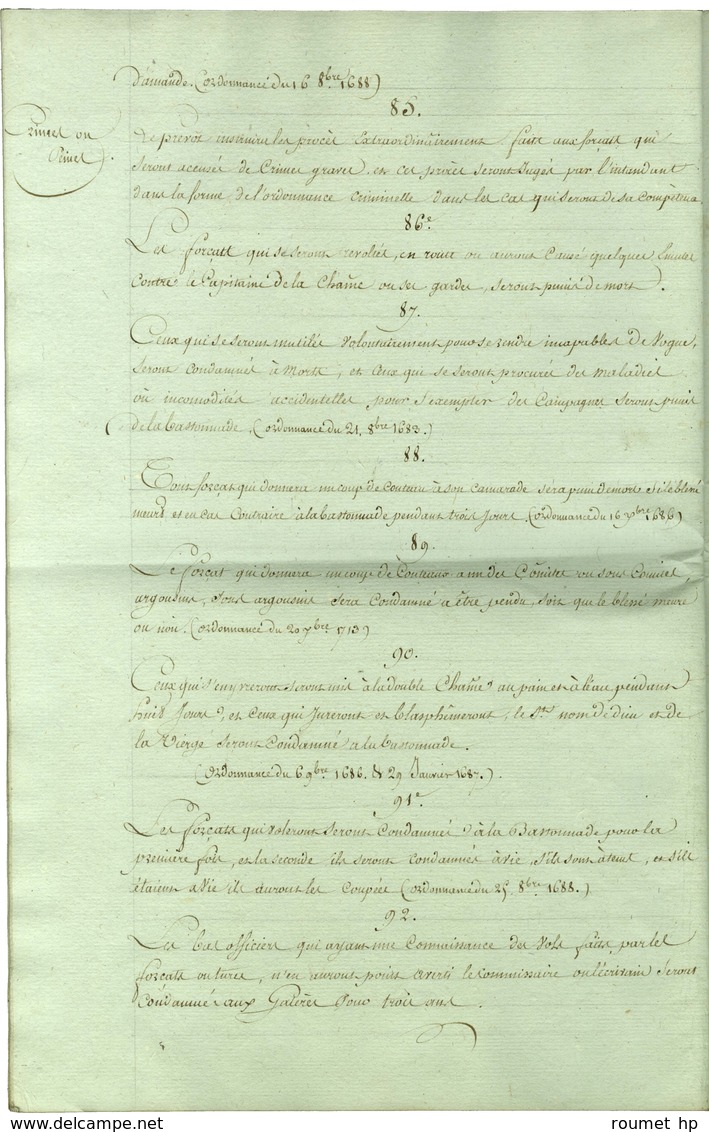 D'amande. (ordonnance du 16 8bre 1688)
85.
Crimes ou
Peines
Le prevôt instruira les procès Extraordinairement faits aux forçats qui
seront accusés de Crimes graves et ces procès seront Jugés par l'intendant
dans la forme de l'ordonnance criminelle dans les cas qui seront de sa compétence
86e.
Les forçats qui se seront revoltés, en route ou auront Causé quelques
contre le Capitaine de la Chaîne ou ses gardes, seront punis de mort.
87.
Ceux qui se seront mutilés Volontairement pour se rendre incapables de Vogue,
seront Condamnés à Mort, et Ceux qui se seront procuré des maladies
où incomodités accidentelles pour s'exempter des Campagnes seront punis
de la bastonnade. (ordonnance du 21. 8bre 1683.)
88.
Tout forçat qui donnera un coup de Couteau à son Camarade sera puni de mort si le blessé
meurt, et en cas Contraire à la bastonnade pendant trois Jours. (ordonnance du 16 1686)
89.
Le forçat qui donnera un coup de Couteau a un des Comites ou sous Comites,
argousins, sous argousins sera Condamné a être pendu, soit que le blessé meure
ou non. (ordonnance du 20 7bre 1713)
90.
Ceux qui s'enyvreront seront mis à la double Chaîne au pain et à l'eau pendant
huit Jours, et Ceux qui Jureront et blasphêmeront, le St. nom de dieu et de
la Viérge seront Condamné a la bastonnade.
(Ordonnance du 6 9bre 1686. & 29 Janvier 1687.)
91e.
Les forçats qui voleront seront Condamnés à la Bastonnade pour la
première fois, et la seconde ils seront condamnés à vie, s'ils sont à tems, et s'ils
étaient a Vie ils auront les coupées (ordonnance du 25 8bre 1688.)
92.
Les bas officiers qui ayant une Connaissance des Vols faits par les
forçats ou turcs, n'en auront point averti le Commissaire ou l'écrivain seront
Condamnés aux Galéres Pour trois ans.
roumet hp